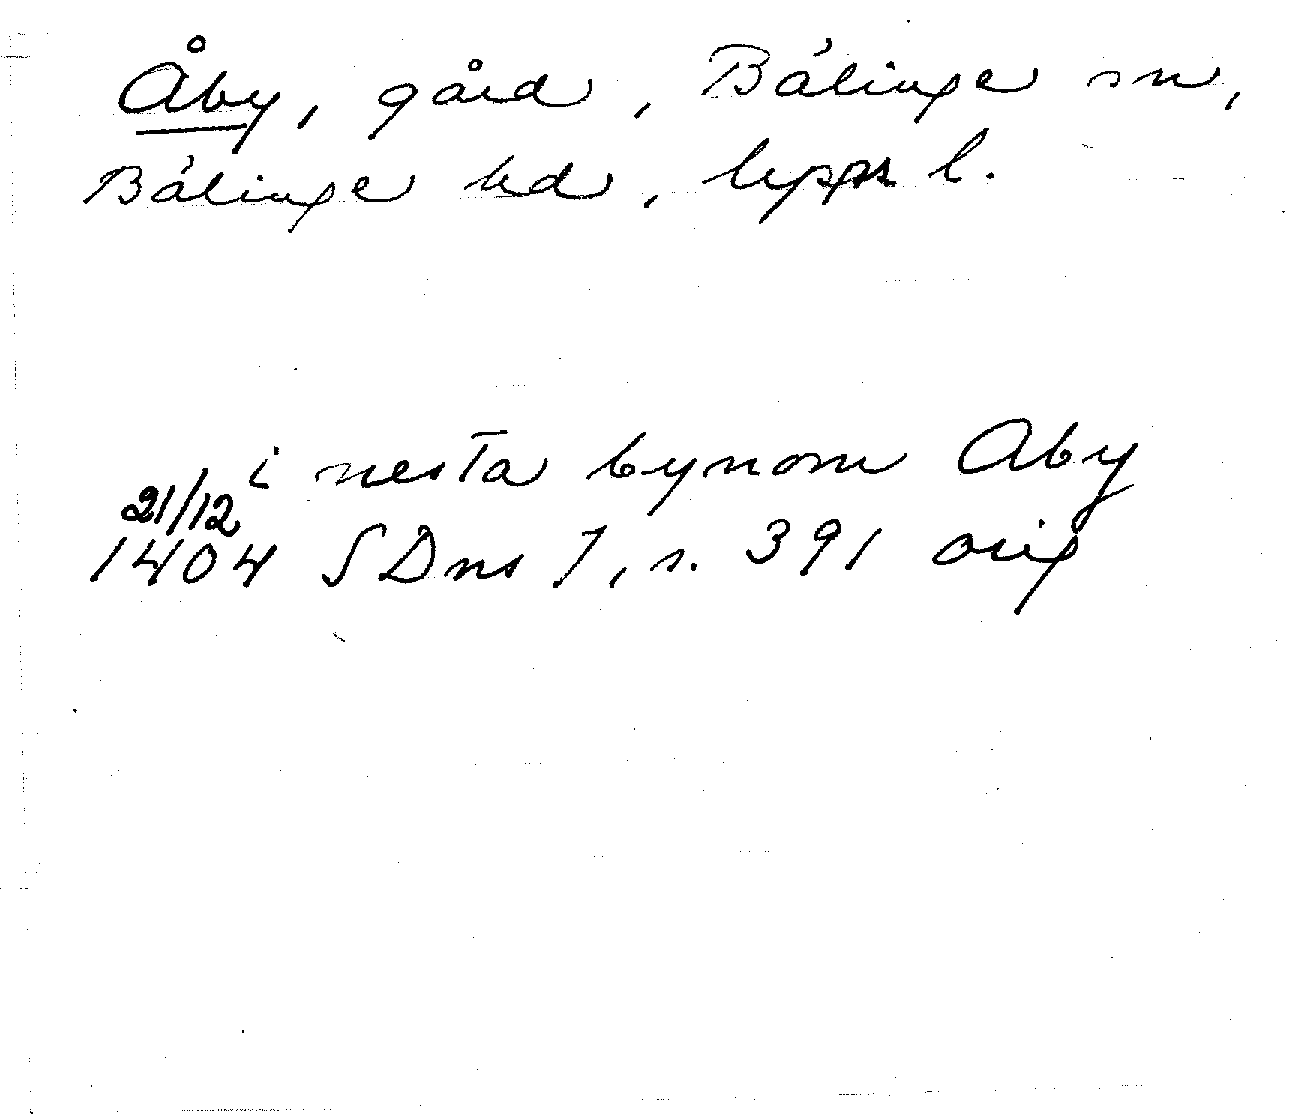 Åby, gård, Bälinge sn,
Bälinge hd, Upps l.
i nesta bynom Aby
21/12
1404 SDns 1, s. 391 orig